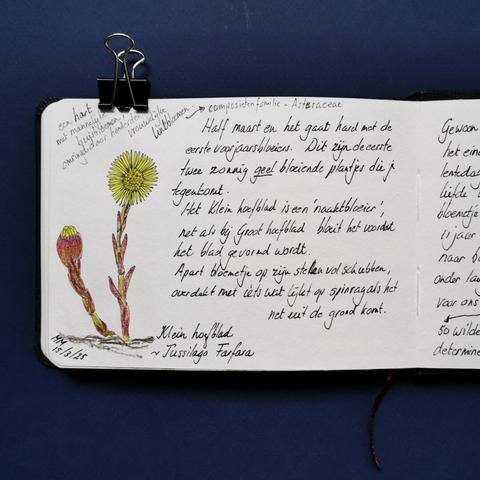 een hart
met mannelijke
buisbloemen
omringd door honderden
vrouwelijke
lintbloemen
composietenfamilie - Asteraceae
Half maart en het gaat hard met de
eerste voorjaarsbloeiers. Dit zijn de eerste
twee zonnig geel bloeiende plantjes die j
tegenkomt.
Het Klein hoefblad is een 'naaktbloeier',
net als bij Groot hoefblad bloeit het voordat
het blad gevormd wordt.
Apart bloemetje op zijn stelen vol schubben,
overdekt met iets wat lijkt op spinrag als het
net uit de grond komt.
Klein hoefblad
~ Tussilago Farfara
MM
15/3/25
Gewoon
het eind
lentedaa
liefde
bloemetje
11 jaar
naar b
onder la
voor ons
50 wilde
determine